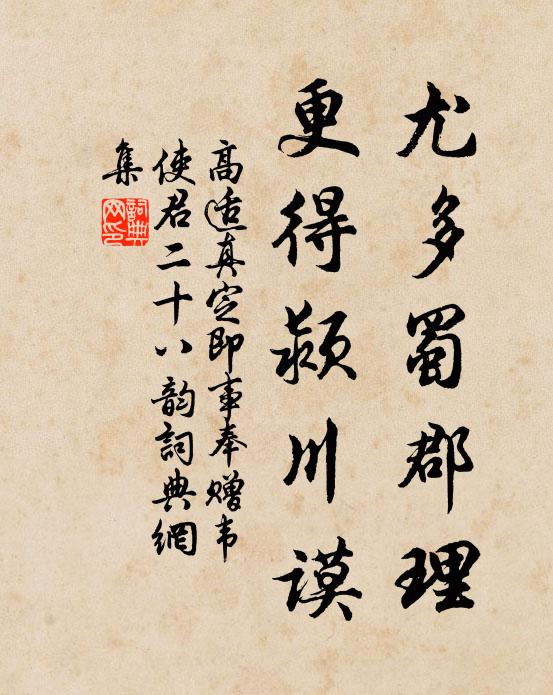 尤多蜀郡理
更得颍川谟
高适真定即事奉赠韦
使君二十八韵词典網
集
詞典
网印